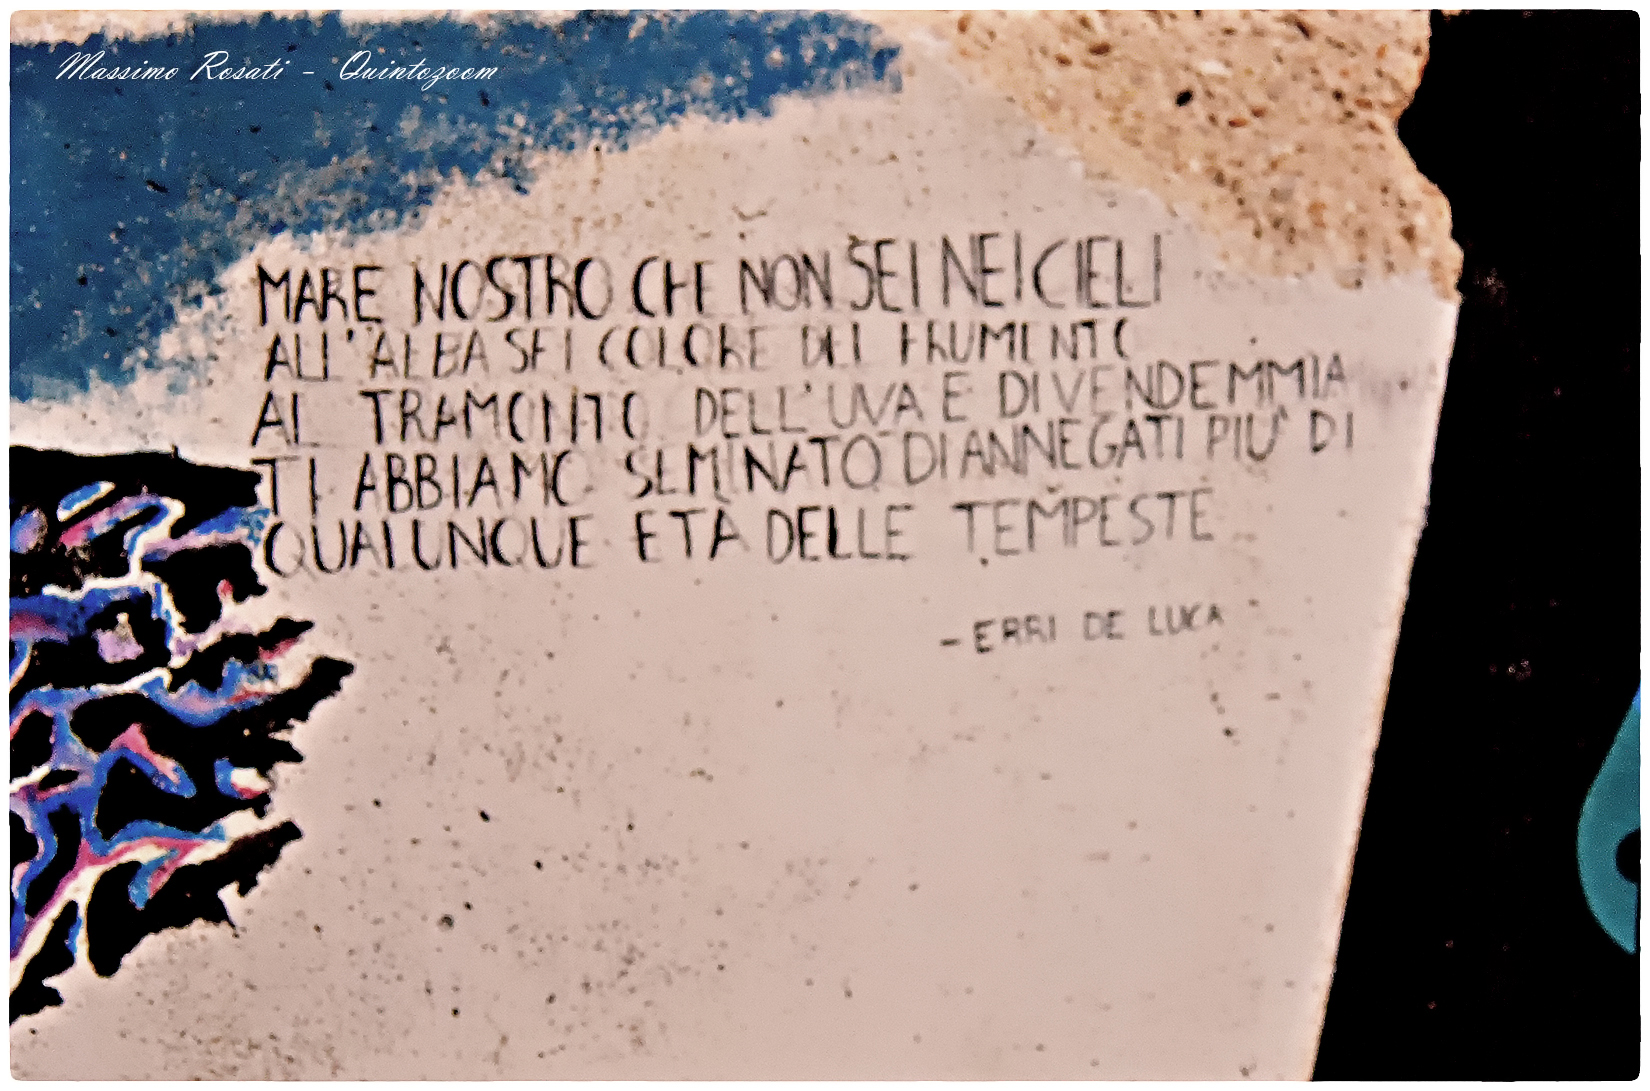 Massimo Rosati - Quintozoom
MARE NOSTRO CHE NON SEI NEI CIELI
ALL'ALBA SEI COLORE DEL FRUMENTO
AL TRAMONTO DELL'UVA E DI VENDEMMIA
TI ABBIAMO SEMINATO DI ANNEGATI PIÙ DI
QUALUNQUE ETÀ DELLE TEMPESTE
- ERRI DE LUCA